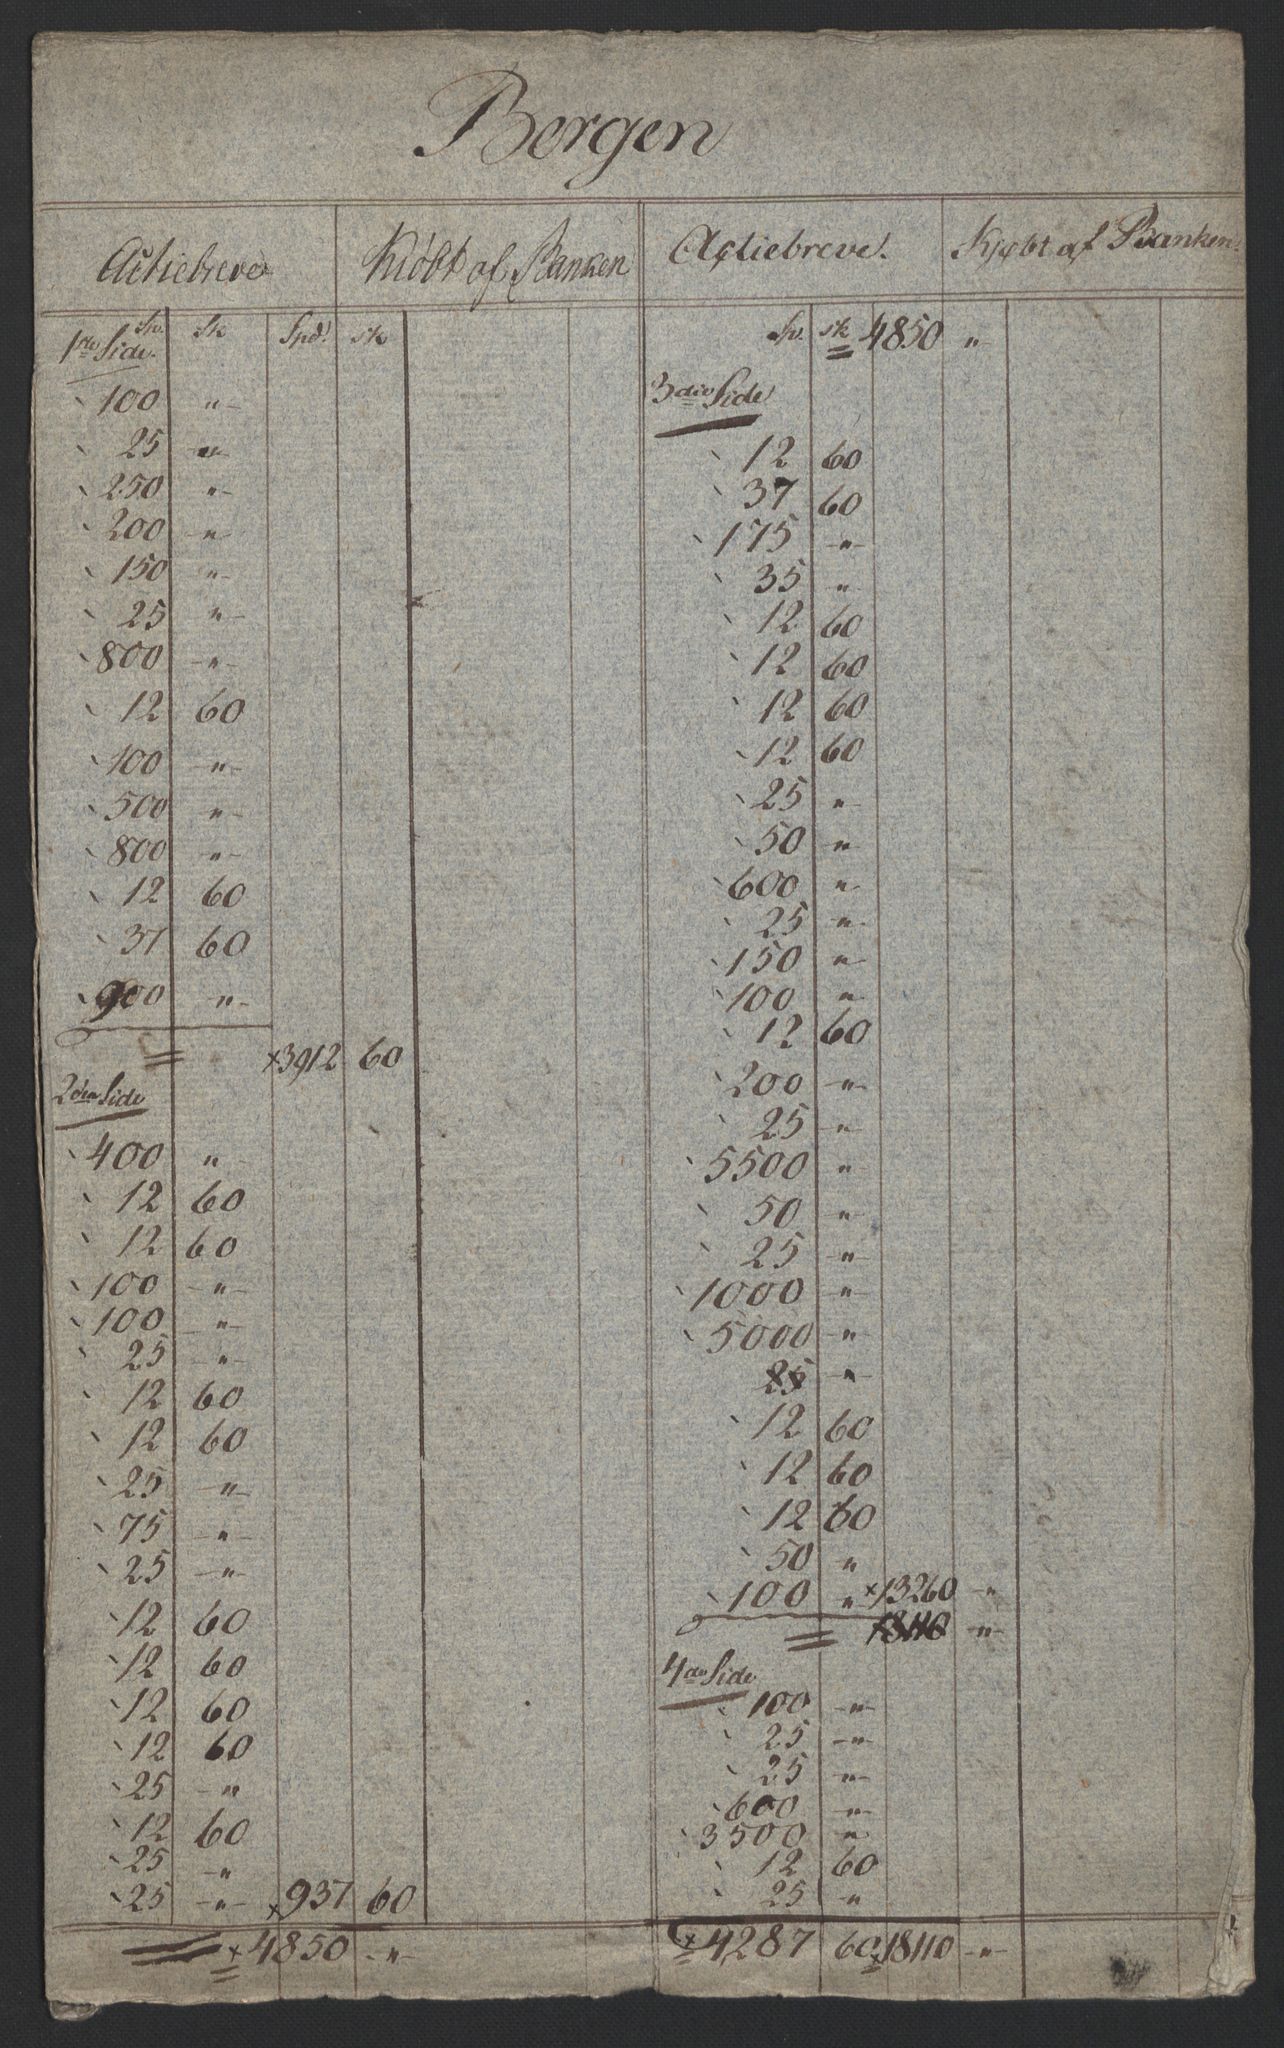 Bergen
Actiebreve Kiöbt af Banken
Sp. Sk Spd. sk
1ste Side.
100 "
25 "
250 "
200 "
150 "
25 "
800 "
12 60
100 "
500 "
800 "
12 60
37 60
900 "
3912 60
2den Side
400 "
12 60
12 60
100 "
100 "
25 "
12 60
12 60
25 "
75 "
25 "
12 60
12 60
12 60
12 60
25 "
12 60
25 "
25 " 937 60
4850 "
Actiebreve. Kjøbt af Banken.
Sp. sk 4850 "
3die Side
12 60
37 60
175 "
35 "
12 60
12 60
12 60
12 60
25 "
50 "
600 "
25 "
150 "
100 "
12 60
200 "
25 "
5500 "
50 "
25 "
1000 "
5000 "
25 "
12 60
12 60
12 60
50 "
100 " 13260 "
18110 "
4de Side
100 "
25 "
25 "
600 "
3500 "
12 60
25 "
4287 60 18110 "